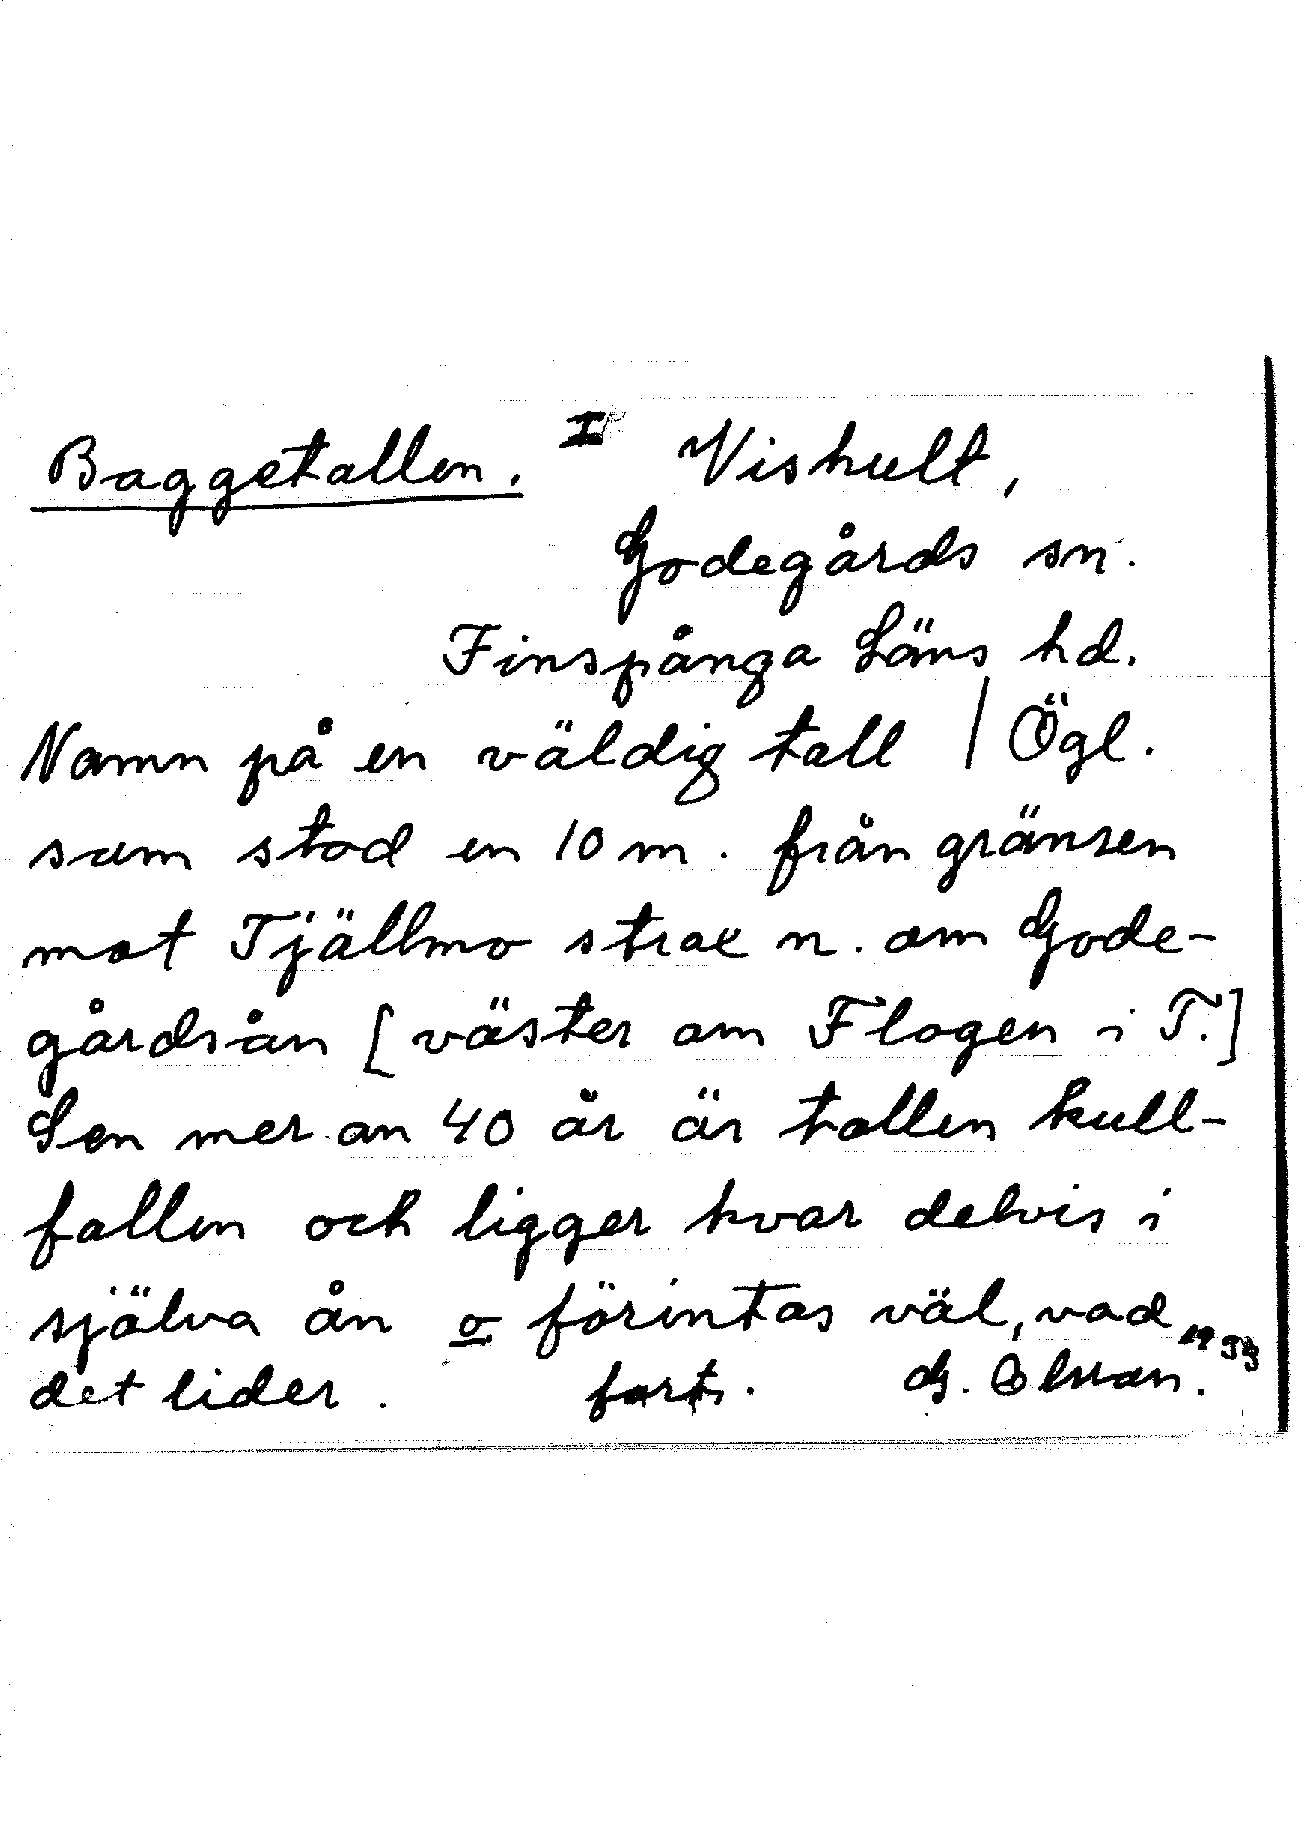 Baggetallen. I Vishult,
Godegårds sn.
Finspånga Läns hd.
Namn på en väldig tall / Ögl.
som stod en 10 m. från gränsen
mot Tjällmo strax n. om Gode-
gårdsån [väster om Flogen i T.]
Sen mer än 40 år är tallen kull-
fallen och ligger kvar delvis i
själva ån o förintas väl, vad
det lider. forts. G.